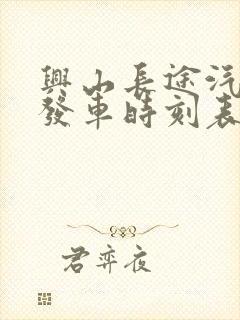 興山長途汽
發車時刻表
君弈夜